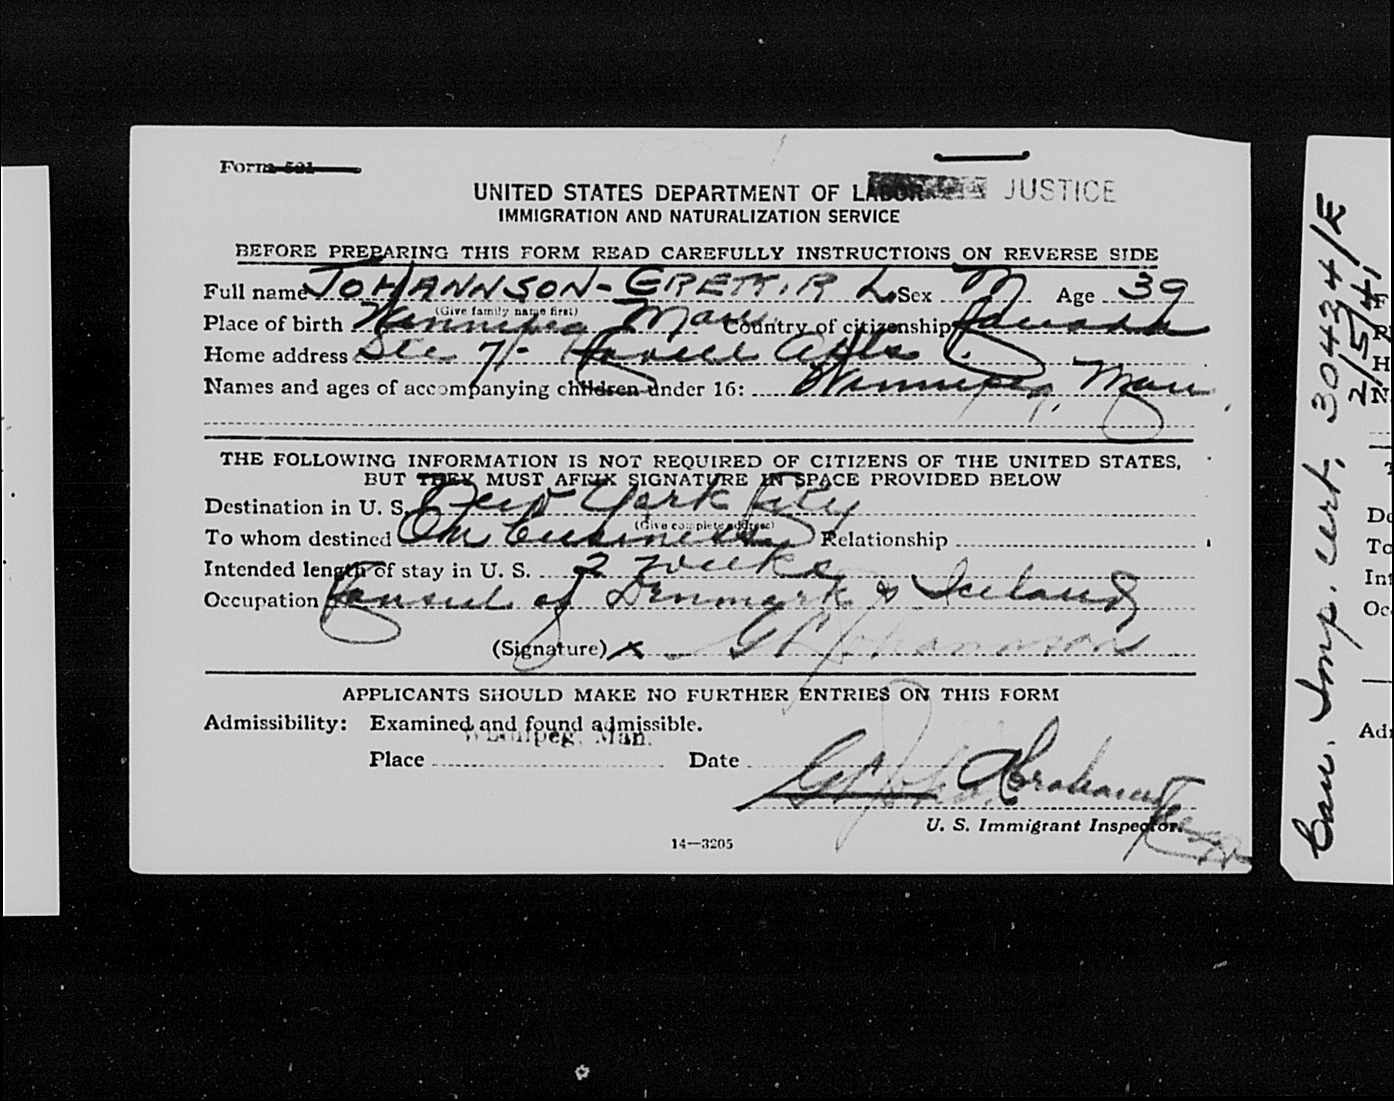 Form 521
UNITED STATES DEPARTMENT OF LABOR JUSTICE
IMMIGRATION AND NATURALIZATION SERVICE
BEFORE PREPARING THIS FORM READ CAREFULLY INSTRUCTIONS ON REVERSE SIDE
Full name JOHANNSON - GRETTIR L. Sex M Age 39
(Give family name first)
Place of birth Winnipeg Man. Country of citizenship Canada
Home address Ste 7 - Apts.
Names and ages of accompanying children under 16: Winnipeg, Man
THE FOLLOWING INFORMATION IS NOT REQUIRED OF CITIZENS OF THE UNITED STATES,
BUT THEY MUST AFFIX SIGNATURE IN SPACE PROVIDED BELOW
Destination in U. S. New York City
(Give complete address)
To whom destined On business Relationship
Intended length of stay in U. S. 2 weeks
Occupation Consul of Denmark & Iceland
(Signature) x G L Johannson
APPLICANTS SHOULD MAKE NO FURTHER ENTRIES ON THIS FORM
Admissibility: Examined and found admissible.
Winnipeg, Man.
Place Date
U. S. Immigrant Inspector.
14—3205
Can. Imp. cert. 30434/E
2/5/41